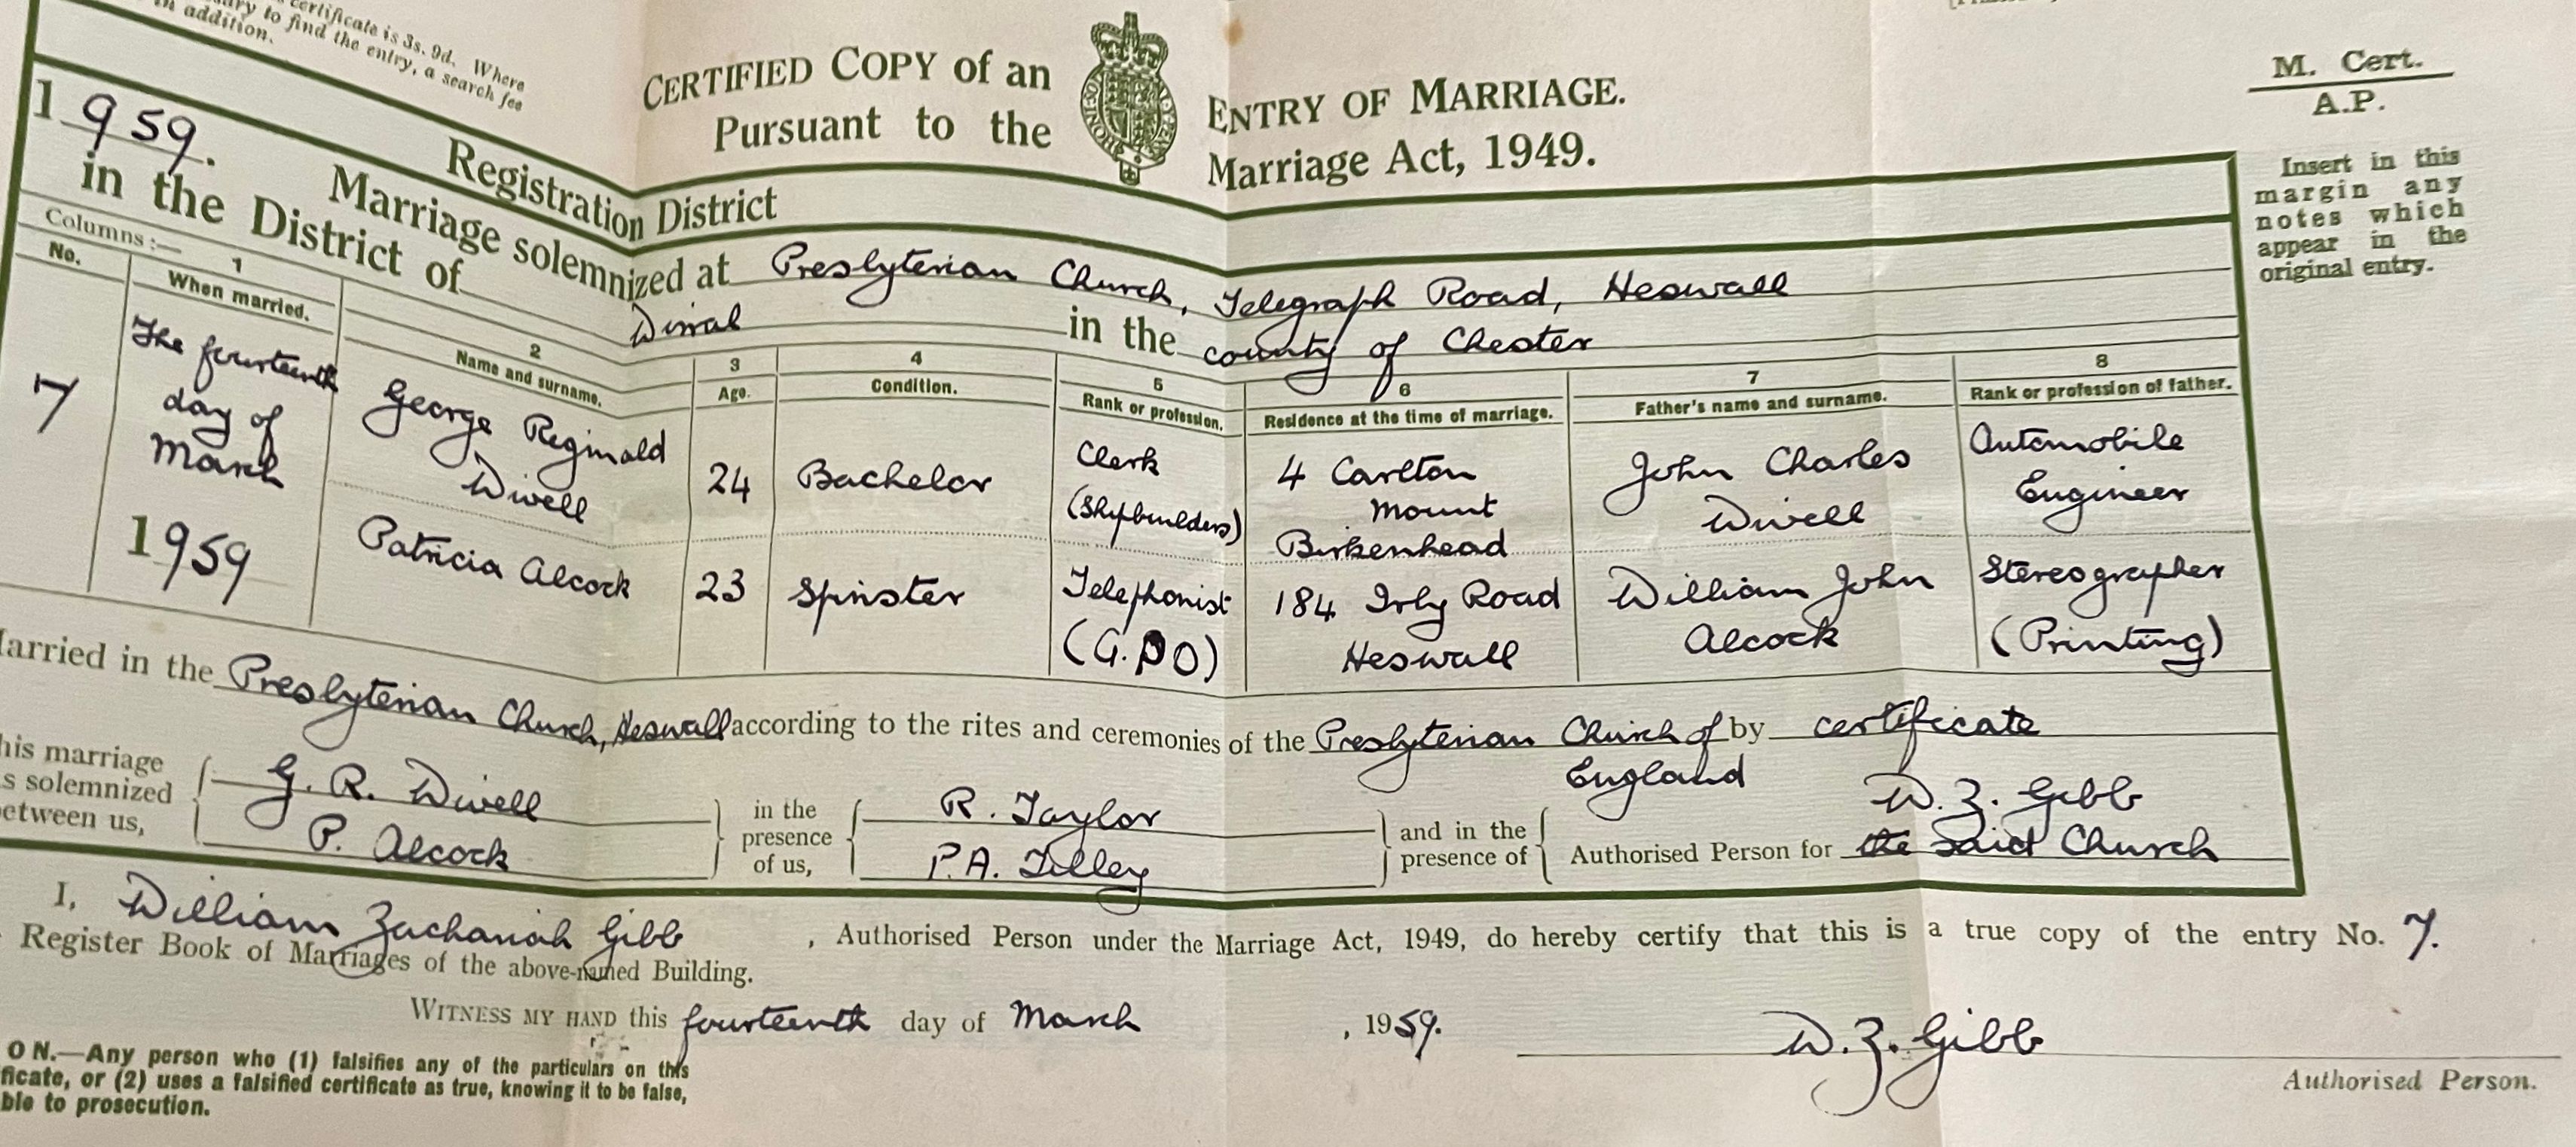 certificate is 3s. 9d. Where
to find the entry, a search fee
in addition.
CERTIFIED COPY of an ENTRY OF MARRIAGE.
Pursuant to the Marriage Act, 1949.
M. Cert.
A.P.
Insert in this
margin any
notes which
appear in the
original entry.
Registration District
1959. Marriage solemnized at Presbyterian Church, Telegraph Road, Heswall
in the District of Wirral in the county of Chester
Columns :— 1 2 3 4 5 6 7 8
No. When married. Name and surname. Age. Condition. Rank or profession. Residence at the time of marriage. Father's name and surname. Rank or profession of father.
7
The fourteenth
day of
March
1959
George Reginald
Diwell
24
Bachelor
Clerk
(Shipbuilders)
4 Carlton
Mount
Birkenhead
John Charles
Diwell
Automobile
Engineer
Patricia Alcock
23
Spinster
Telephonist
(G.P.O)
184 Irby Road
Heswall
William John
Alcock
Stereographer
(Printing)
Married in the Presbyterian Church, Heswall according to the rites and ceremonies of the Presbyterian Church of England by certificate
This marriage
was solemnized
between us,
G. R. Diwell
P. Alcock
in the
presence
of us,
R. Taylor
P.A. Tilley
and in the
presence of
W. Z. Gibb
Authorised Person for the said Church
I, William Zachariah Gibb, Authorised Person under the Marriage Act, 1949, do hereby certify that this is a true copy of the entry No. 7.
Register Book of Marriages of the above-named Building.
WITNESS MY HAND this fourteenth day of March, 1959.
W. Z. Gibb
Authorised Person.
ON.—Any person who (1) falsifies any of the particulars on this
ficate, or (2) uses a falsified certificate as true, knowing it to be false,
ble to prosecution.